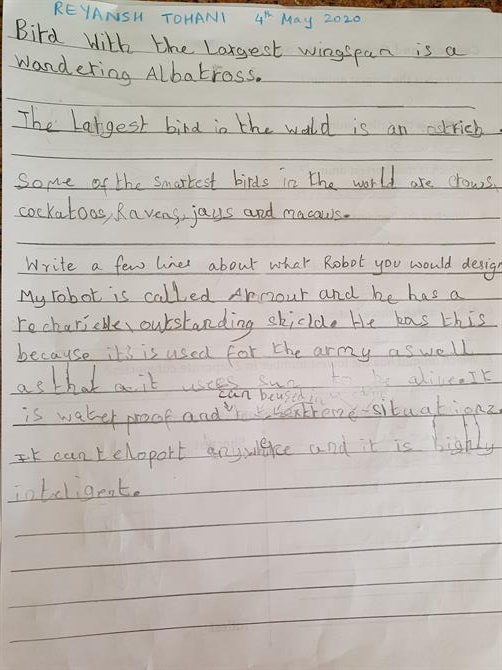 REYANSH TOHANI 4th May 2020
Bird With the Largest wingspan is a
Wandering Albatross.
The Largest bird in the world is an ostrich.
Some of the smartest birds in the world are crows,
cockatoos, Ravens, jays and macaws.
Write a few lines about what Robot you would design
My robot is called Armour and he has a
outstanding He has this
because it is used for the army as well
as that it uses sun to be alive. It
can be used in
is water proof and extreme situations.
It can teloport anywhere and it is highly
inteligent.